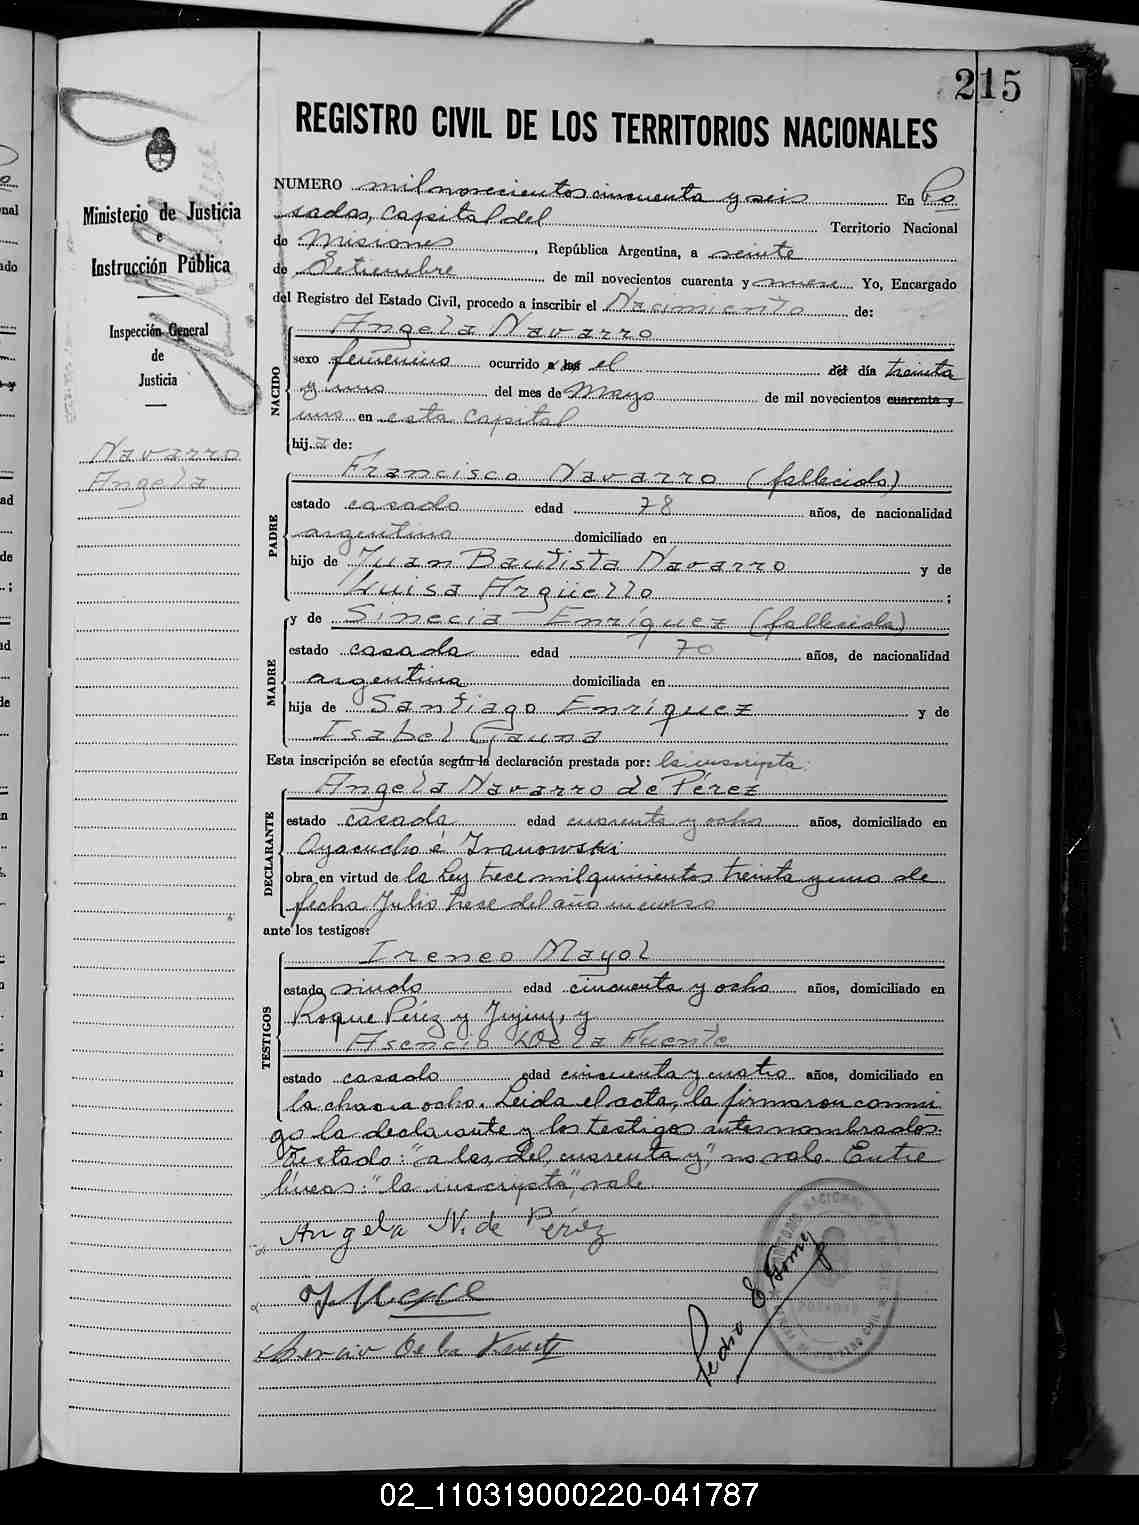 215
REGISTRO CIVIL DE LOS TERRITORIOS NACIONALES
Ministerio de Justicia
e
Instrucción Pública
Inspección General
de
Justicia
Navarro
Angela
NUMERO mil novecientos cincuenta y seis En Po
sadas, capital del Territorio Nacional
de Misiones, República Argentina, a veinte
de Setiembre de mil novecientos cuarenta y nueve Yo, Encargado
del Registro del Estado Civil, procedo a inscribir el Nacimiento de:
NACIDO
Angela Navarro
sexo femenino ocurrido a las el del día treinta
y uno del mes de Mayo de mil novecientos cuarenta y
uno en esta capital
hij a de:
PADRE
Francisco Navarro (fallecido)
estado casado edad 78 años, de nacionalidad
argentino domiciliado en
hijo de Juan Bautista Navarro y de
Luisa Argüello ;
MADRE
y de Sinecia Enríquez (fallecida)
estado casada edad 70 años, de nacionalidad
argentina domiciliada en
hija de Santiago Enríquez y de
Isabel Gauna
Esta inscripción se efectúa según la declaración prestada por: la inscripta:
DECLARANTE
Angela Navarro de Pérez
estado casada edad cuarenta y ocho años, domiciliado en
Ayacucho é Iranowski
obra en virtud de la Ley trece mil quinientos treinta y uno de
fecha Julio trece del año en curso
ante los testigos:
TESTIGOS
Ireneo Mayol
estado viudo edad cincuenta y ocho años, domiciliado en
Roque Pérez y Jujuy, y
Asencio De la Fuente
estado casado edad cincuenta y cuatro años, domiciliado en
la chacra ocho. Leida el acta, la firmaron conmi
go la declarante y los testigos antes nombrados.
Testado: "a las, del, cuarenta y", no vale. Entre
líneas: "la inscripta", vale
Angela N. de Pérez
Asencio De la Fuente
Pedro E Gomez
POSADAS
02_110319000220-041787